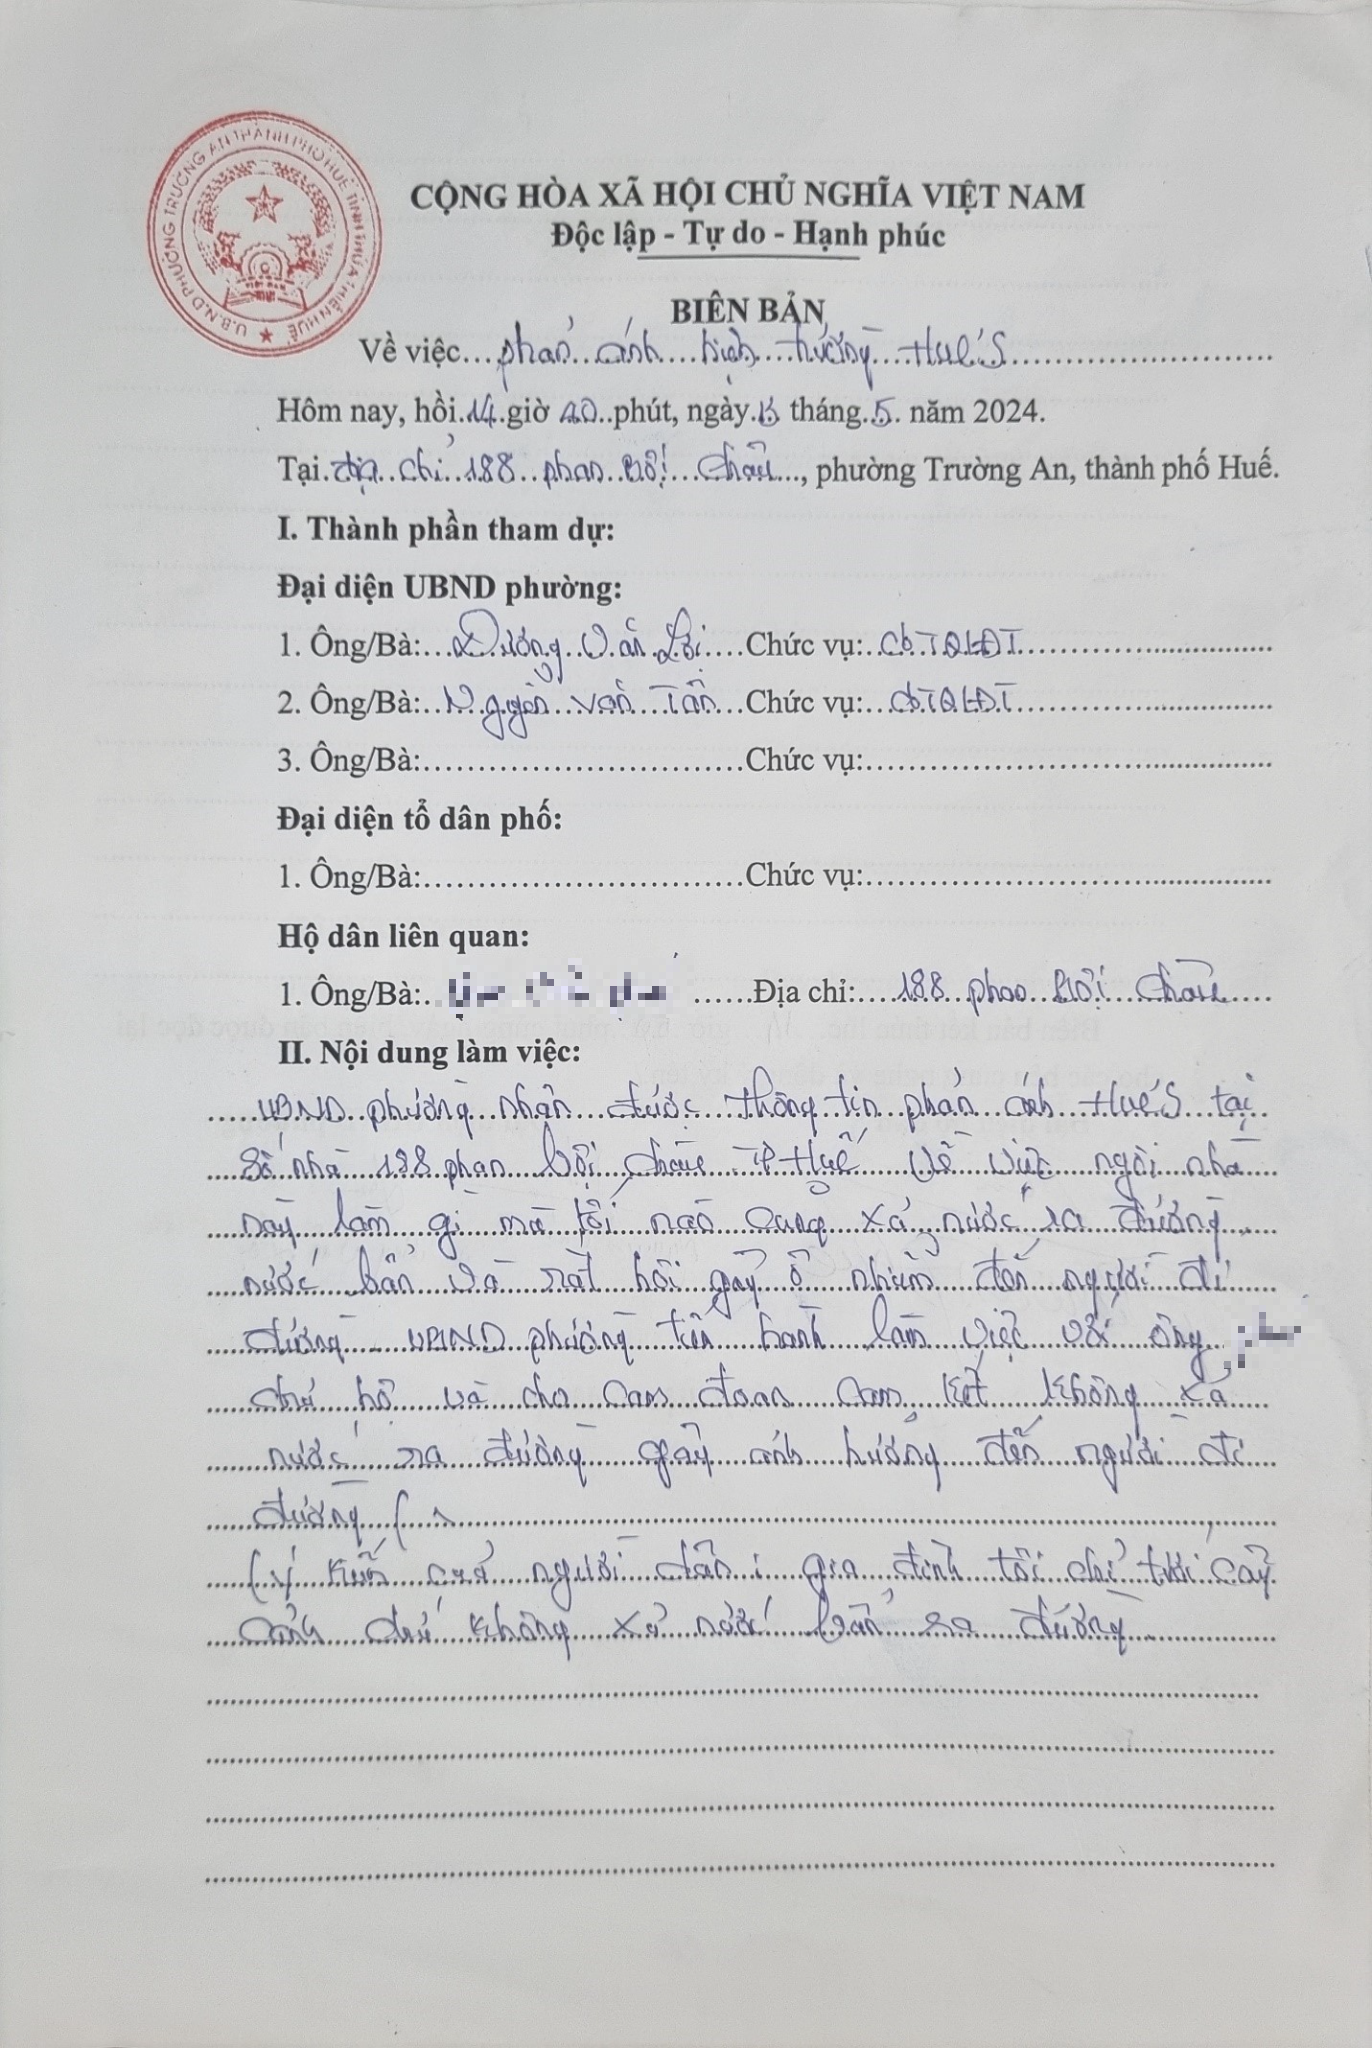 U.B.N.D PHƯỜNG TRƯỜNG AN THÀNH PHỐ HUẾ TỈNH THỪA THIÊN HUẾ
CỘNG HÒA XÃ HỘI CHỦ NGHĨA VIỆT NAM
Độc lập - Tự do - Hạnh phúc
BIÊN BẢN
Về việc phản ánh hiện trường HueS
Hôm nay, hồi 14 giờ phút, ngày tháng 5 năm 2024.
Tại địa chỉ 188 phan Bội Châu, phường Trường An, thành phố Huế.
I. Thành phần tham dự:
Đại diện UBND phường:
1. Ông/Bà: Dương Văn Lợi Chức vụ: CBTQLĐT
2. Ông/Bà: Nguyễn Văn Tân Chức vụ: CBTQLĐT
3. Ông/Bà: Chức vụ:
Đại diện tổ dân phố:
1. Ông/Bà: Chức vụ:
Hộ dân liên quan:
1. Ông/Bà: Địa chỉ: 188 phan Bội Châu
II. Nội dung làm việc:
UBND phường nhận được thông tin phản ánh HueS tại
số nhà 188 phan Bội Châu TP Huế về việc ngôi nhà
này làm gì mà tối nào cũng xả nước ra đường,
nước bẩn và rất hôi gây ô nhiễm đến người đi
đường. UBND phường tiến hành làm việc với ông
chủ hộ và cho cam đoan cam kết không xả
nước ra đường gây ảnh hưởng đến người đi
đường (
(ý kiến của người dân: gia đình tôi chỉ tưới cây
cảnh chứ không xả nước bẩn ra đường.